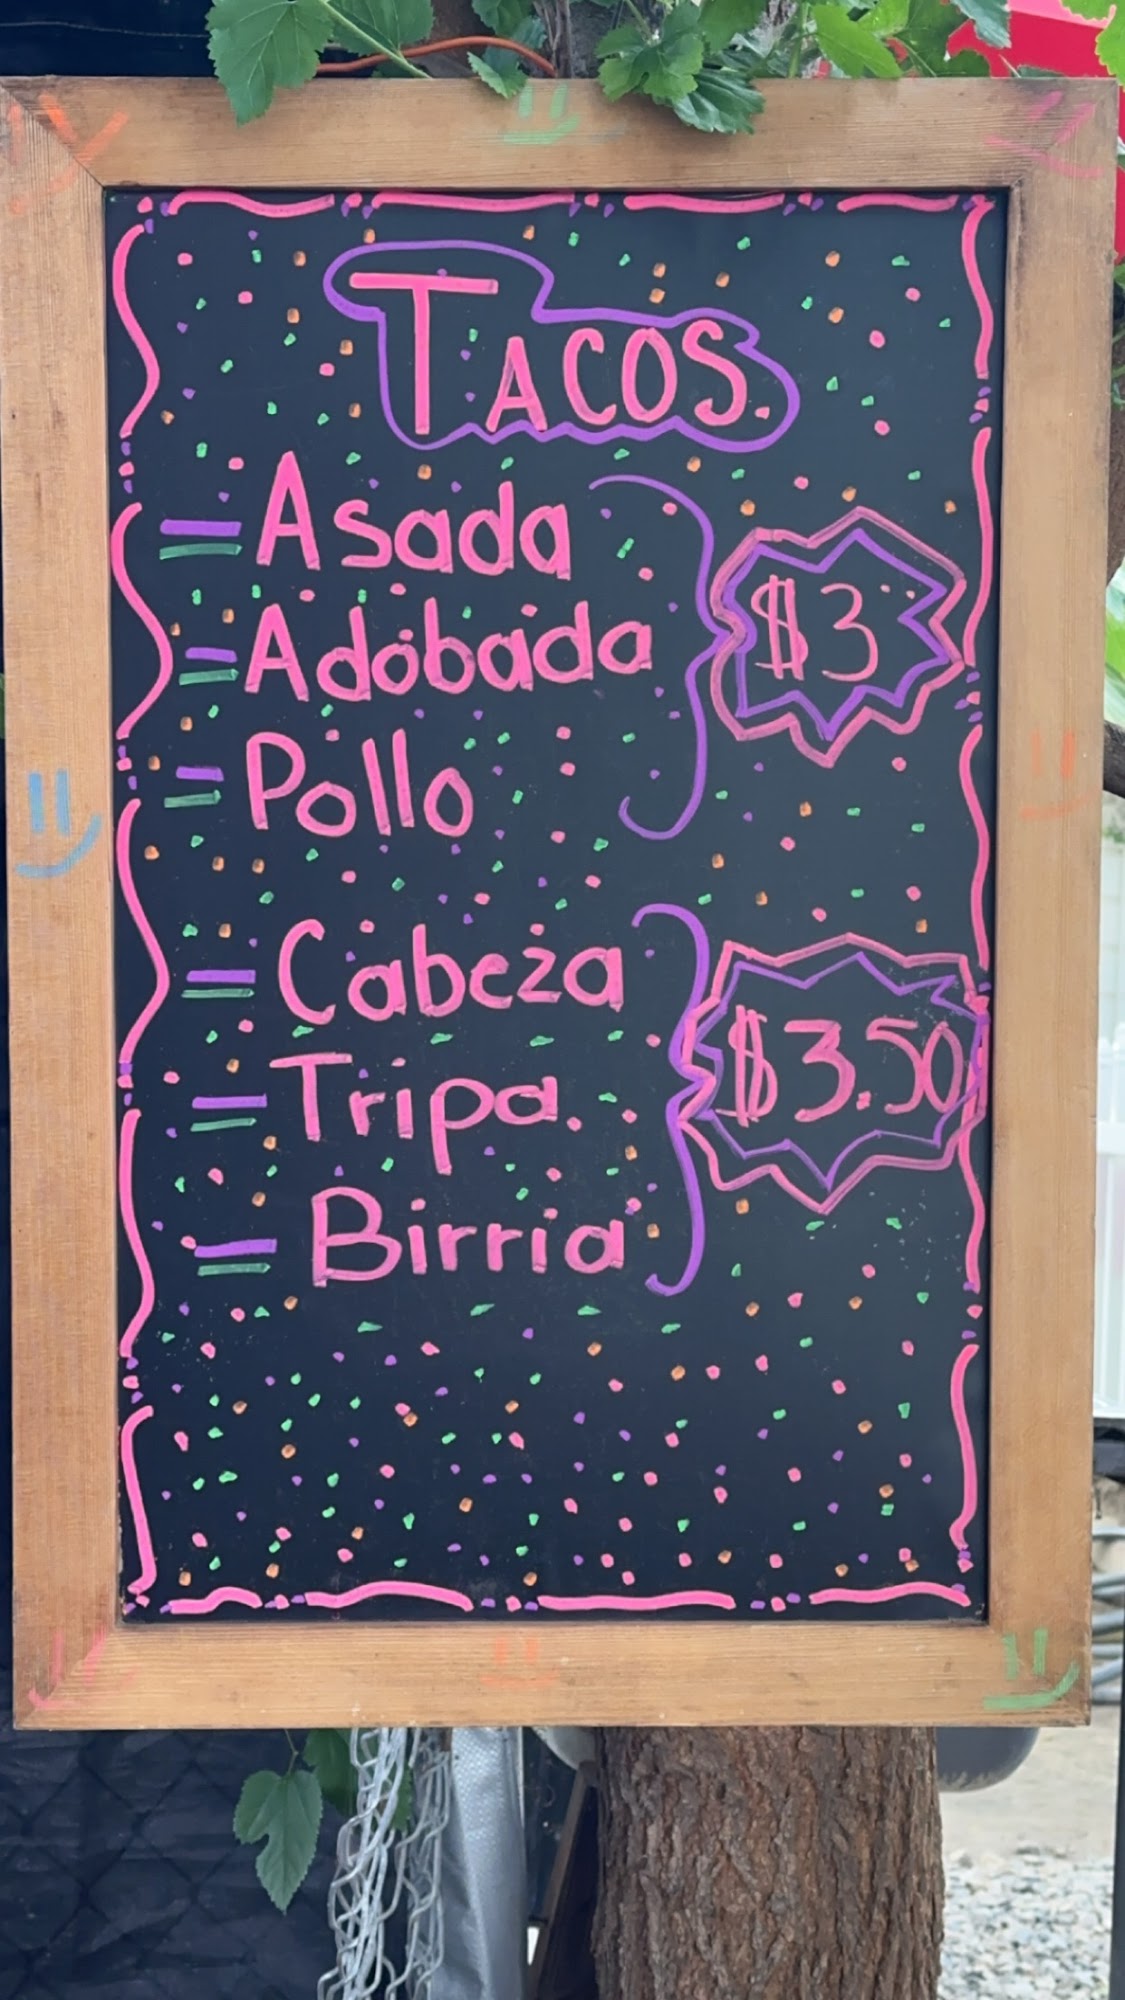 TACOS.
= Asada
= Adobada
$3
= Pollo
= Cabeza
= Tripa.
$3.50
= Birria